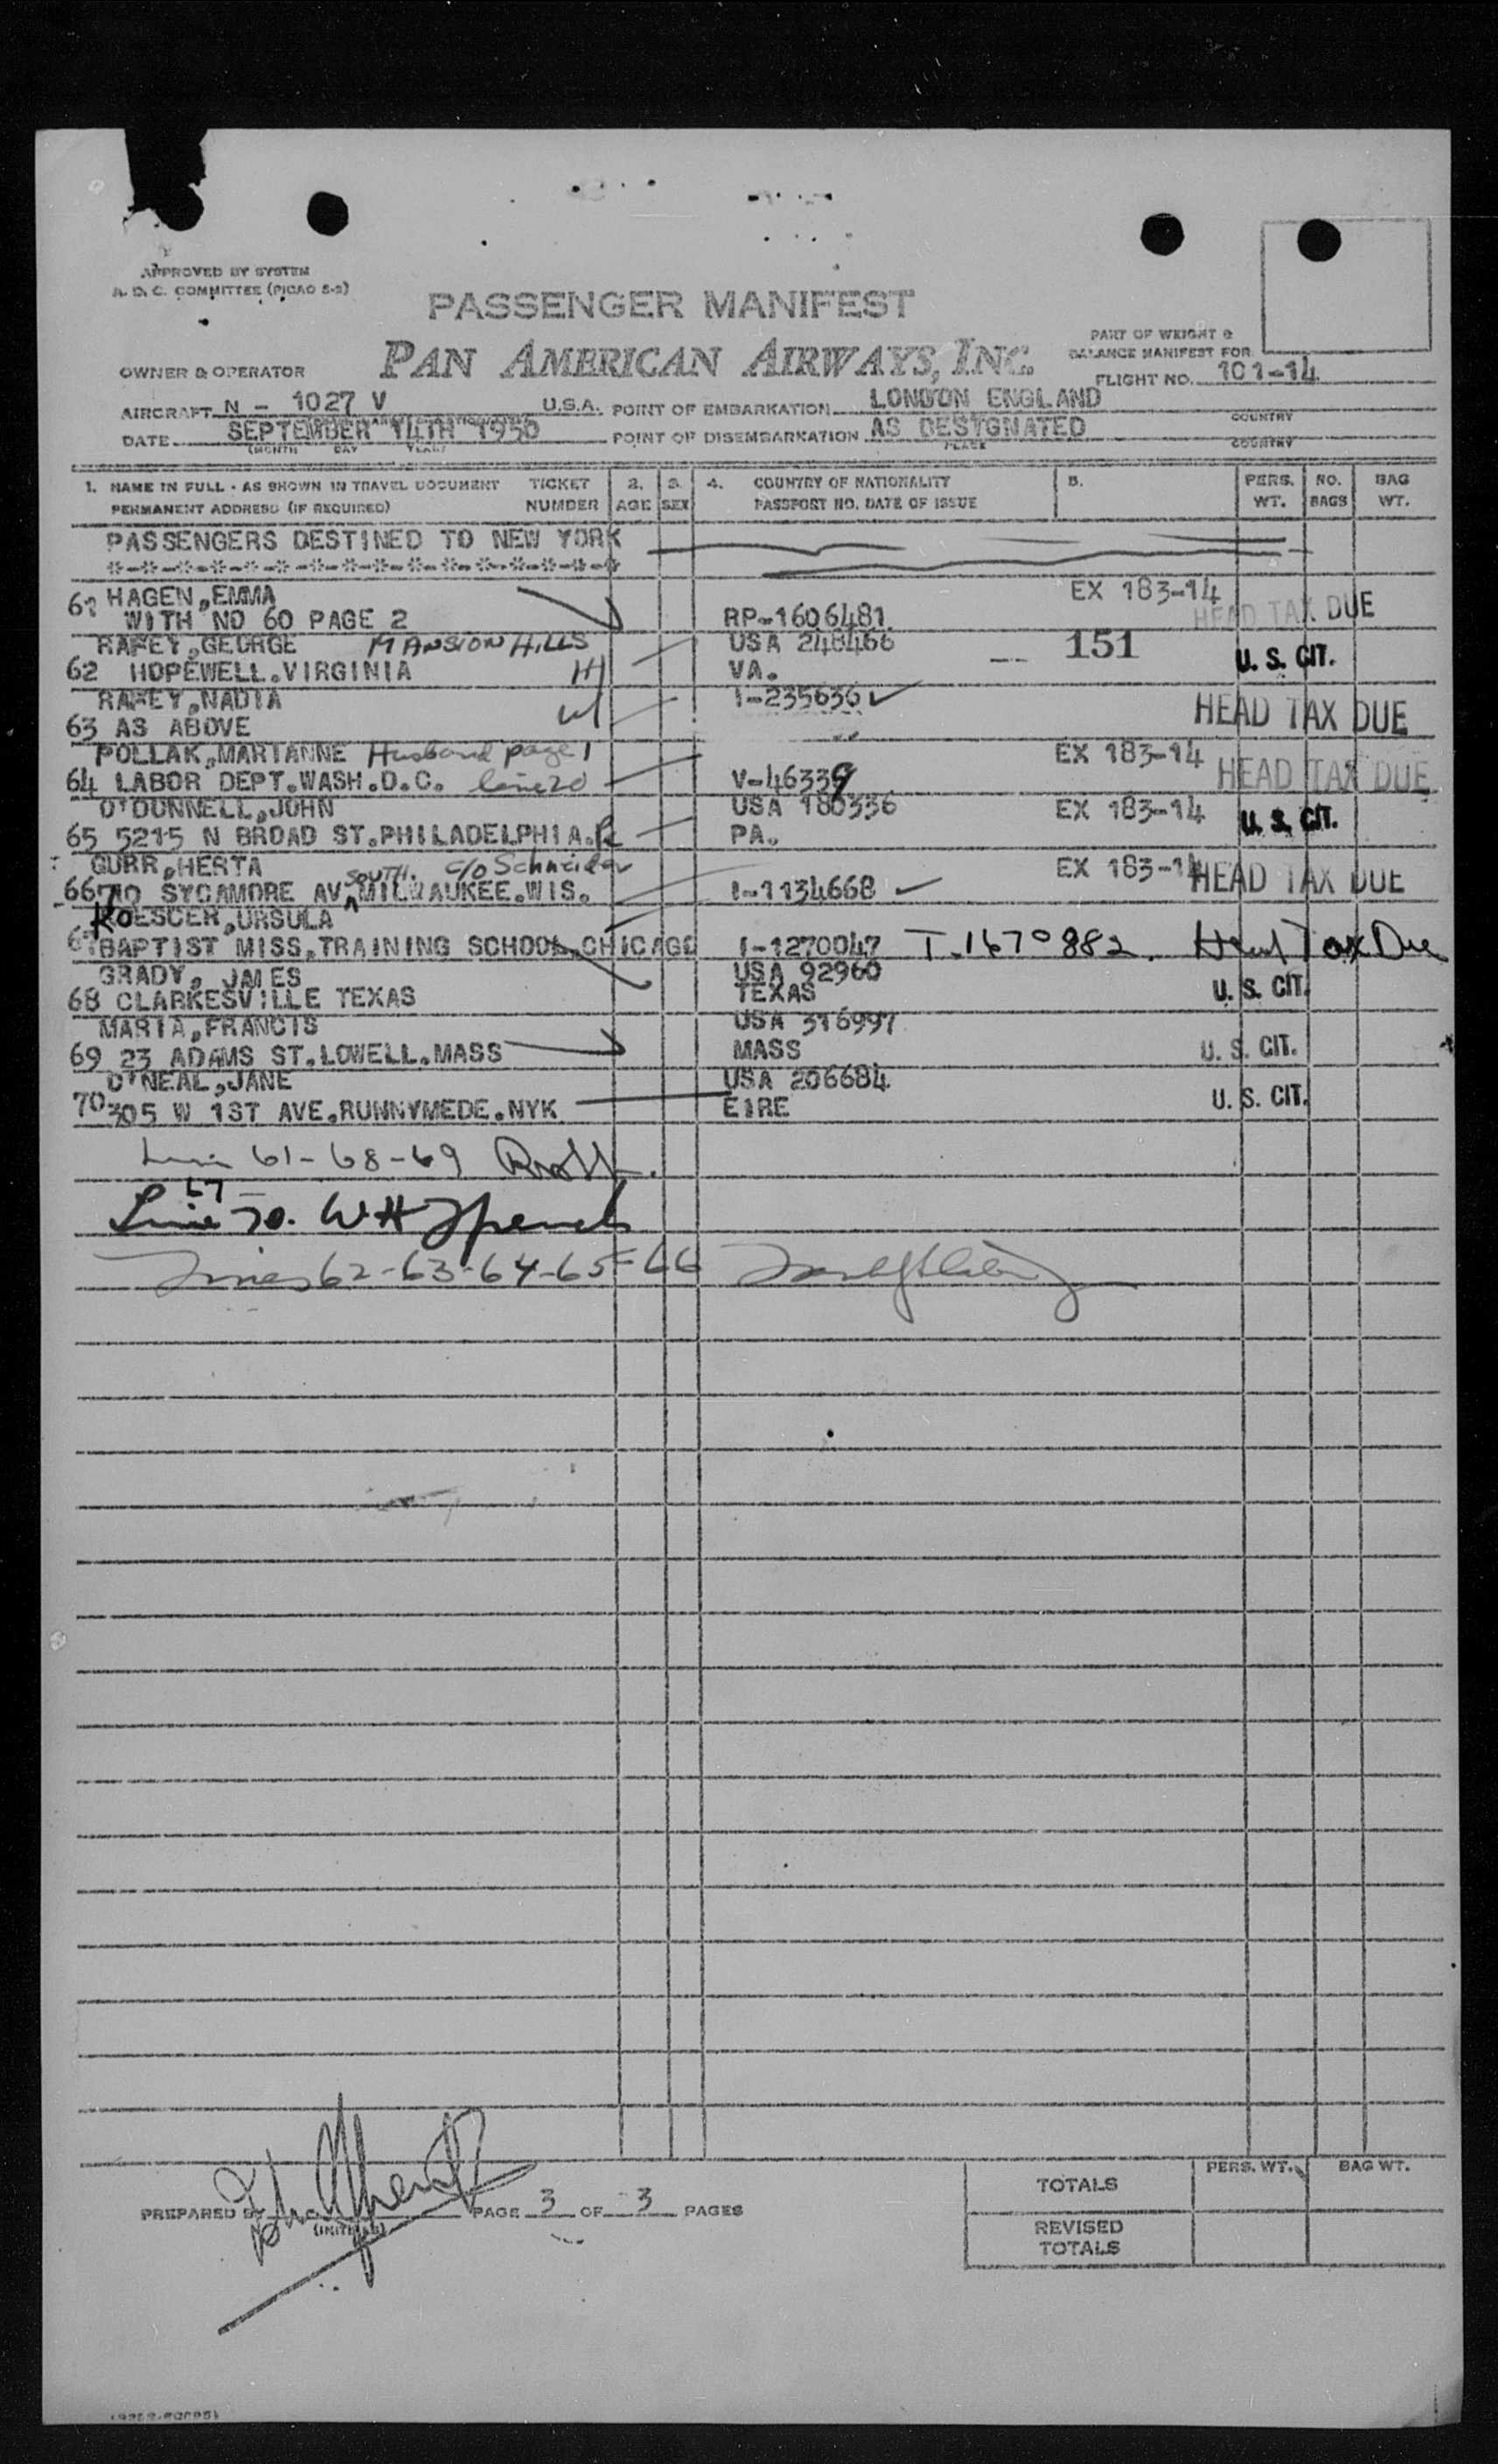 APPROVED BY SYSTEM
A. D. C. COMMITTEE (PICAO 5-2)
PASSENGER MANIFEST
PAN AMERICAN AIRWAYS, INC.
PART OF WEIGHT &
BALANCE MANIFEST FOR
OWNER & OPERATOR
FLIGHT NO. 101-14
AIRCRAFT N - 1027 V U.S.A. POINT OF EMBARKATION LONDON ENGLAND
COUNTRY
DATE SEPTEMBER 14TH 1950 POINT OF DISEMBARKATION AS DESIGNATED
(MONTH DAY YEAR) PLACE COUNTRY
1. NAME IN FULL - AS SHOWN IN TRAVEL DOCUMENT TICKET 2. 3. 4. COUNTRY OF NATIONALITY 5. PERS. NO. BAG
PERMANENT ADDRESS (IF REQUIRED) NUMBER AGE SEX PASSPORT NO. DATE OF ISSUE WT. BAGS WT.
PASSENGERS DESTINED TO NEW YORK
*-*-*-*-*-*-*-*-*-*-*-*-*-*-*-*
HAGEN,EMMA EX 183-14
61 WITH NO 60 PAGE 2 RP-1606481 HEAD TAX DUE
RAFEY,GEORGE MANSION HILLS USA 248466 -- 151
62 HOPEWELL.VIRGINIA H VA. U. S. CIT.
RAFEY,NADIA W I-235636 ✓ HEAD TAX DUE
63 AS ABOVE
POLLAK,MARIANNE Husband page 1 EX 183-14
64 LABOR DEPT.WASH.D.C. line 20 V-46339 HEAD TAX DUE
O'DONNELL,JOHN USA 180336 EX 183-14
65 5215 N BROAD ST.PHILADELPHIA.Pa PA. U. S. CIT.
GURR,HERTA SOUTH. c/o Schneider EX 183-14 HEAD TAX DUE
66 710 SYCAMORE AV.MILWAUKEE.WIS. I-1134668 ✓
ROESCER,URSULA
67 BAPTIST MISS.TRAINING SCHOOL.CHICAGO I-1270047 T.1670882. Head Tax Due
GRADY, JAMES USA 92960
68 CLARKESVILLE TEXAS TEXAS U. S. CIT.
MARIA,FRANCIS USA 316997
69 23 ADAMS ST.LOWELL.MASS MASS U. S. CIT.
O'NEAL,JANE USA 206684
70 305 W 1ST AVE.RUNNYMEDE.NYK EIRE U. S. CIT.
61-68-69
67
Line 70. WH
Lines 62-63-64-65-66
PREPARED BY PAGE 3 OF 3 PAGES
(INITIALS)
PERS. WT. BAG WT.
TOTALS
REVISED
TOTALS